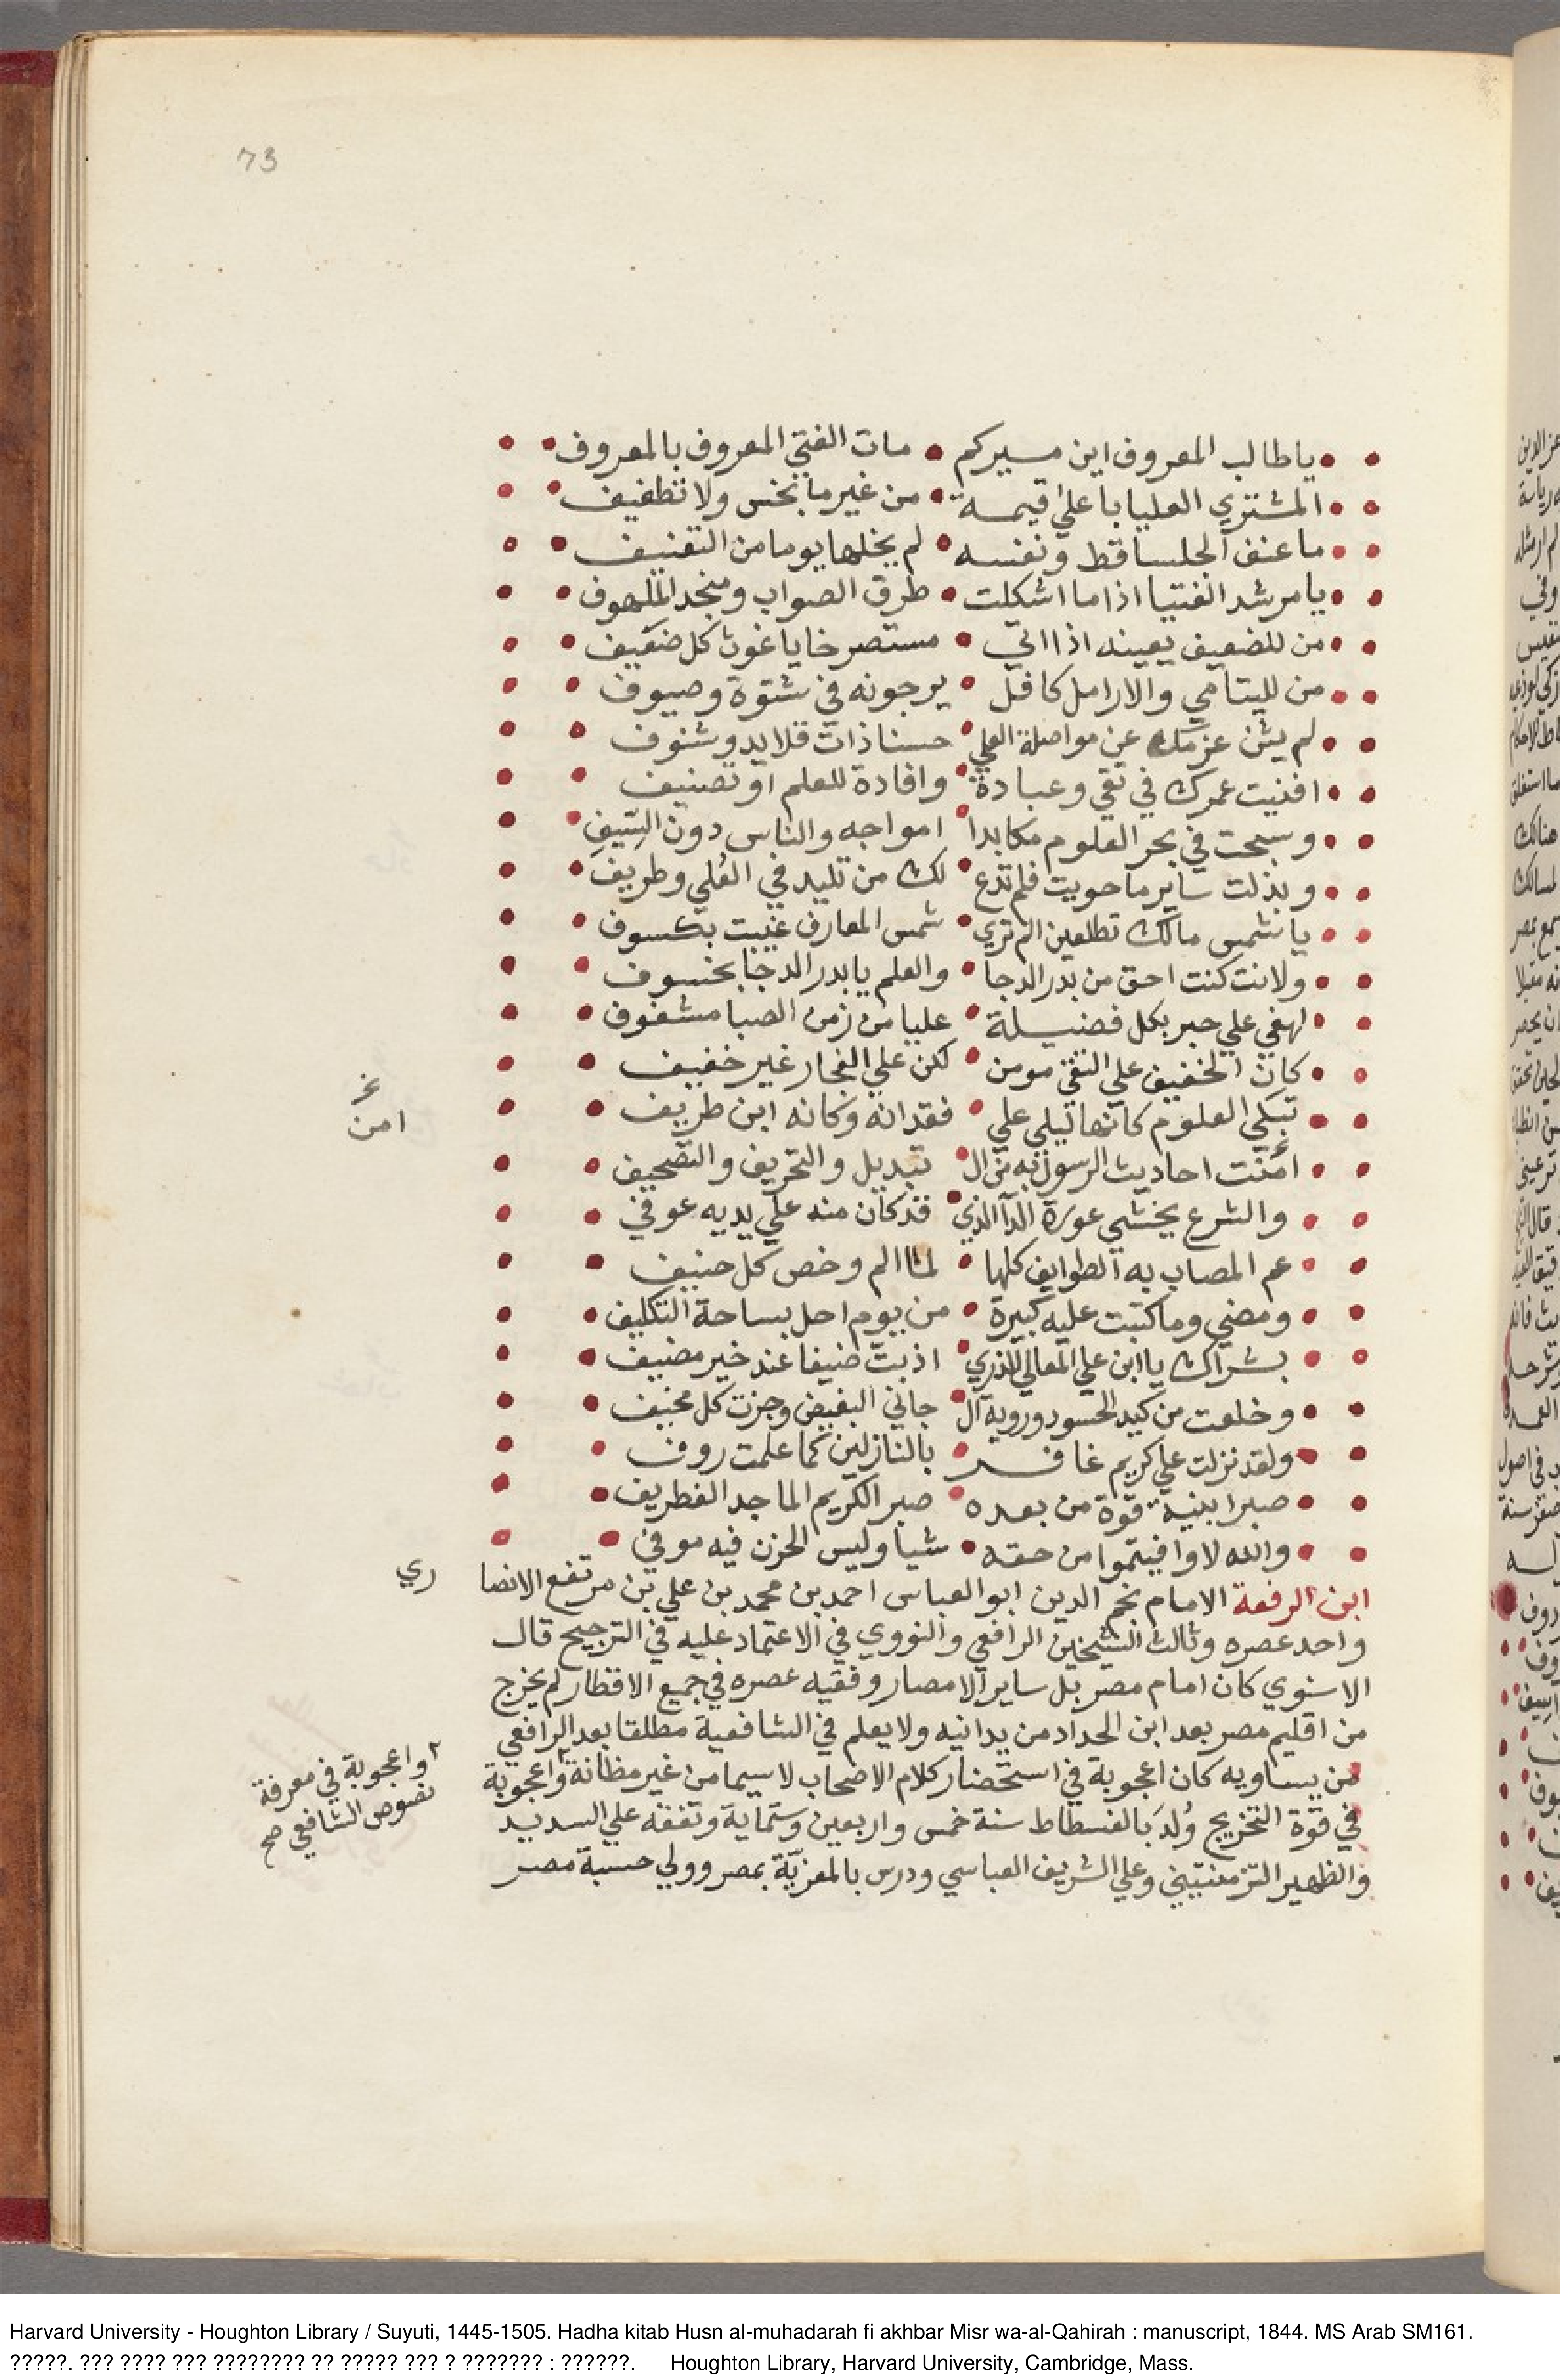 73
يا طالب المعروف اين مسيركم • مات الفتي المعروف بالمعروف
المشتري العليا باعلي قيمة • من غير ما بخس ولا تطفيف
ما عنف الجلسا قط ونفسه • لم يخلها يوما من التعنيف
يا مرشد الفتيا اذا ما اشكلت • طرق الصواب ومنجد الملهوف
من للضعيف يعينه اذا اتي • مستصرخا يا غوث كل ضعيف
من لليتامي والارامل كافل • يرجونه في شتوة وصيوف
لم يثن عزمك عن مواصلة العلي • حسنا ذات قلايد وشنوف
افنيت عمرك في تقي وعبادة • وافادة للعلم او تصنيف
وسبحت في بحر العلوم مكابدا • امواجه والناس دون السيف
وبذلت ساير ما حويت فلم تدع • لك من تليد في العلي وطريف
يا شمس مالك تطلعين الم تري • شمس المعارف غيبت بكسوف
ولانت كنت احق من بدر الدجا • والعلم يا بدر الدجا بخسوف
لهفي علي حبر بكل فضيلة • عليا من زمن الصبا مشغوف
كان الخفيف علي التقي مومن • لكن علي الفجار غير خفيف
غ
امن
تبكي العلوم كانها ليلي علي • فقدانه وكانه ابن طريف
امنت احاديث الرسول به من ال • تبديل والتحريف والتصحيف
والشرع يخشي عورة الدا الذي • قد كان منه علي يديه عوفي
عم المصاب به الطوايف كلها • لما الم وخص كل حنيف
ومضي وما كتبت عليه كبيرة • من يوم احل بساحة التكليف
بشراك يا ابن علي المعالي الذري • اذ بت ضيفا عند خير مضيف
وخلعت من كيد الحسود وروية ال • جاني البغيض وجزت كل مخيف
ولقد نزلت علي كريم غافر • بالنازلين كما علمت روف
صبرا بنيه قوة من بعده • صبر الكريم الماجد الغطريف
والله لا وافيتموا من حقه • شيا وليس الحزن فيه موفي
ابن الرفعة الامام نجم الدين ابو العباس احمد بن محمد بن علي بن مرتفع الانصا ري
واحد عصره وثالث الشيخين الرافعي والنووي في الاعتماد عليه في الترجيح قال
الاسنوي كان امام مصر بل ساير الامصار وفقيه عصره في جميع الاقطار لم يخرج
من اقليم مصر بعد ابن الحداد من يدانيه ولا يعلم في الشافعية مطلقا بعد الرافعي
من يساويه كان اعجوبة في استحضار كلام الاصحاب لا سيما من غير مظانة واعجوبة
٢ واعجوبة في معرفة
نصوص الشافعي صح
في قوة التخريج ولد بالفسطاط سنة خمس واربعين وستماية وتفقه علي السديد
والظهير التزمنتيني وعلي الشريف العباسي ودرس بالمعزية بمصر وولي حسبة مصر
Harvard University - Houghton Library / Suyuti, 1445-1505. Hadha kitab Husn al-muhadarah fi akhbar Misr wa-al-Qahirah : manuscript, 1844. MS Arab SM161.
?????. ??? ???? ??? ???????? ?? ????? ??? ? ??????? : ??????. Houghton Library, Harvard University, Cambridge, Mass.